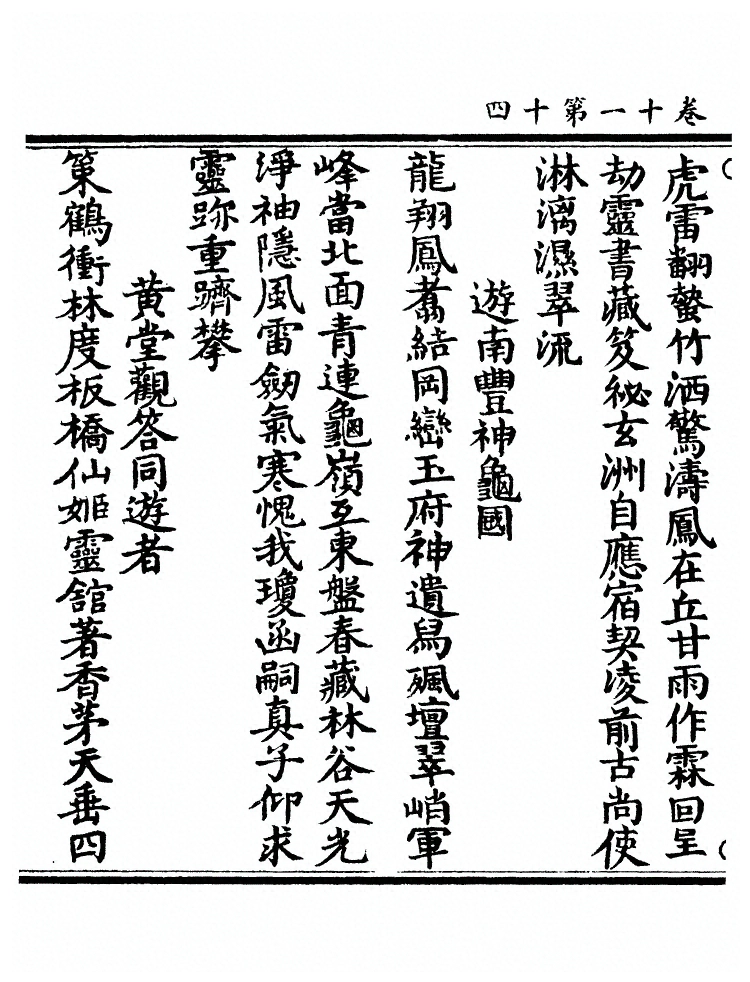 卷一十第十四
虎雷翻蟄竹洒驚濤鳳在丘甘雨作霖回呈
劫靈書藏笈祕玄洲自應宿契凌前古尚使
淋漓濕翠流
遊南豐神龜國
龍翔鳳翥結岡巒玉府神遺舄颯壇翠峭軍
峰當北面青連龜嶺亙東盤春藏林谷天光
淨袖隱風雷劒氣寒愧我瓊函嗣真子仰求
靈跡重躋攀
黃堂觀答同遊者
策鶴衝林度板橋仙姬靈舘著香茅天垂四